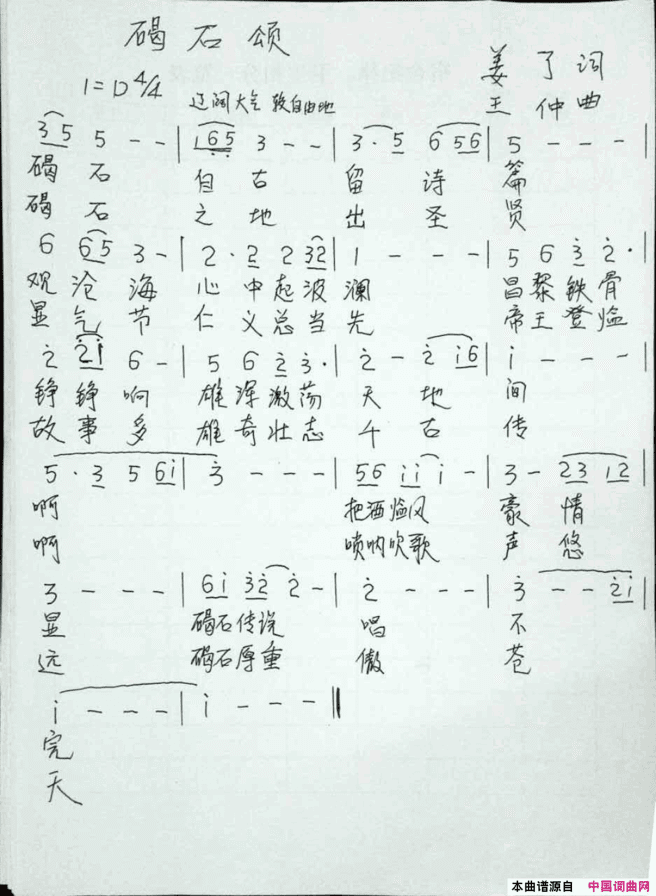 碣石颂
1=D 4/4
姜了词
辽阔大气 较自由地
王仲曲
3 5 5 - - | 1 6 5 3 - - | 3 · 5 6 5 6 | 5
碣石 自古 留诗 篇
碣石 之地 出圣 贤
6 6 5 3 - | 2 · 2 2 3 2 | 1 - - - | 5 6 3 2 ·
观沧海 心中起波澜 昌黎铁骨
显气节 仁义总当先 帝王登临
2 2 1 6 - | 5 6 2 3 · | 2 - 2 1 6 | 1 - - - |
铮铮响 雄浑激荡 天地 间
故事多 雄奇壮志 千古 传
5 · 3 5 6 1 | 3 - - - | 5 6 1 1 1 - | 3 - 2 3 1 2 |
啊 把酒临风 豪情
啊 唢呐吹歌 声悠
3 - - - | 6 1 3 2 2 - | 2 - - - | 3 - - 2 1 |
显 碣石传说 唱 不
远 碣石厚重 傲 苍
1 - - - | 1 - - - ‖
完
天
本曲谱源自 中国词曲网